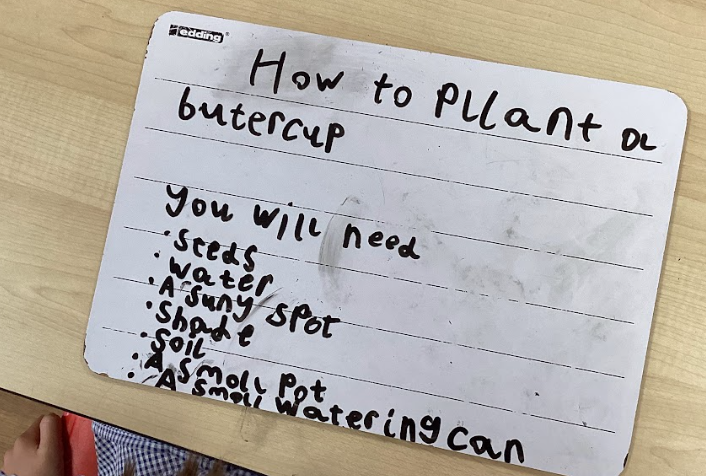 edding
How to Pllant a
butercup
you will need
• Seeds
• water
• A suny spot
• Shade
• Soil
• A Smoll Pot
• A Smoll watering can